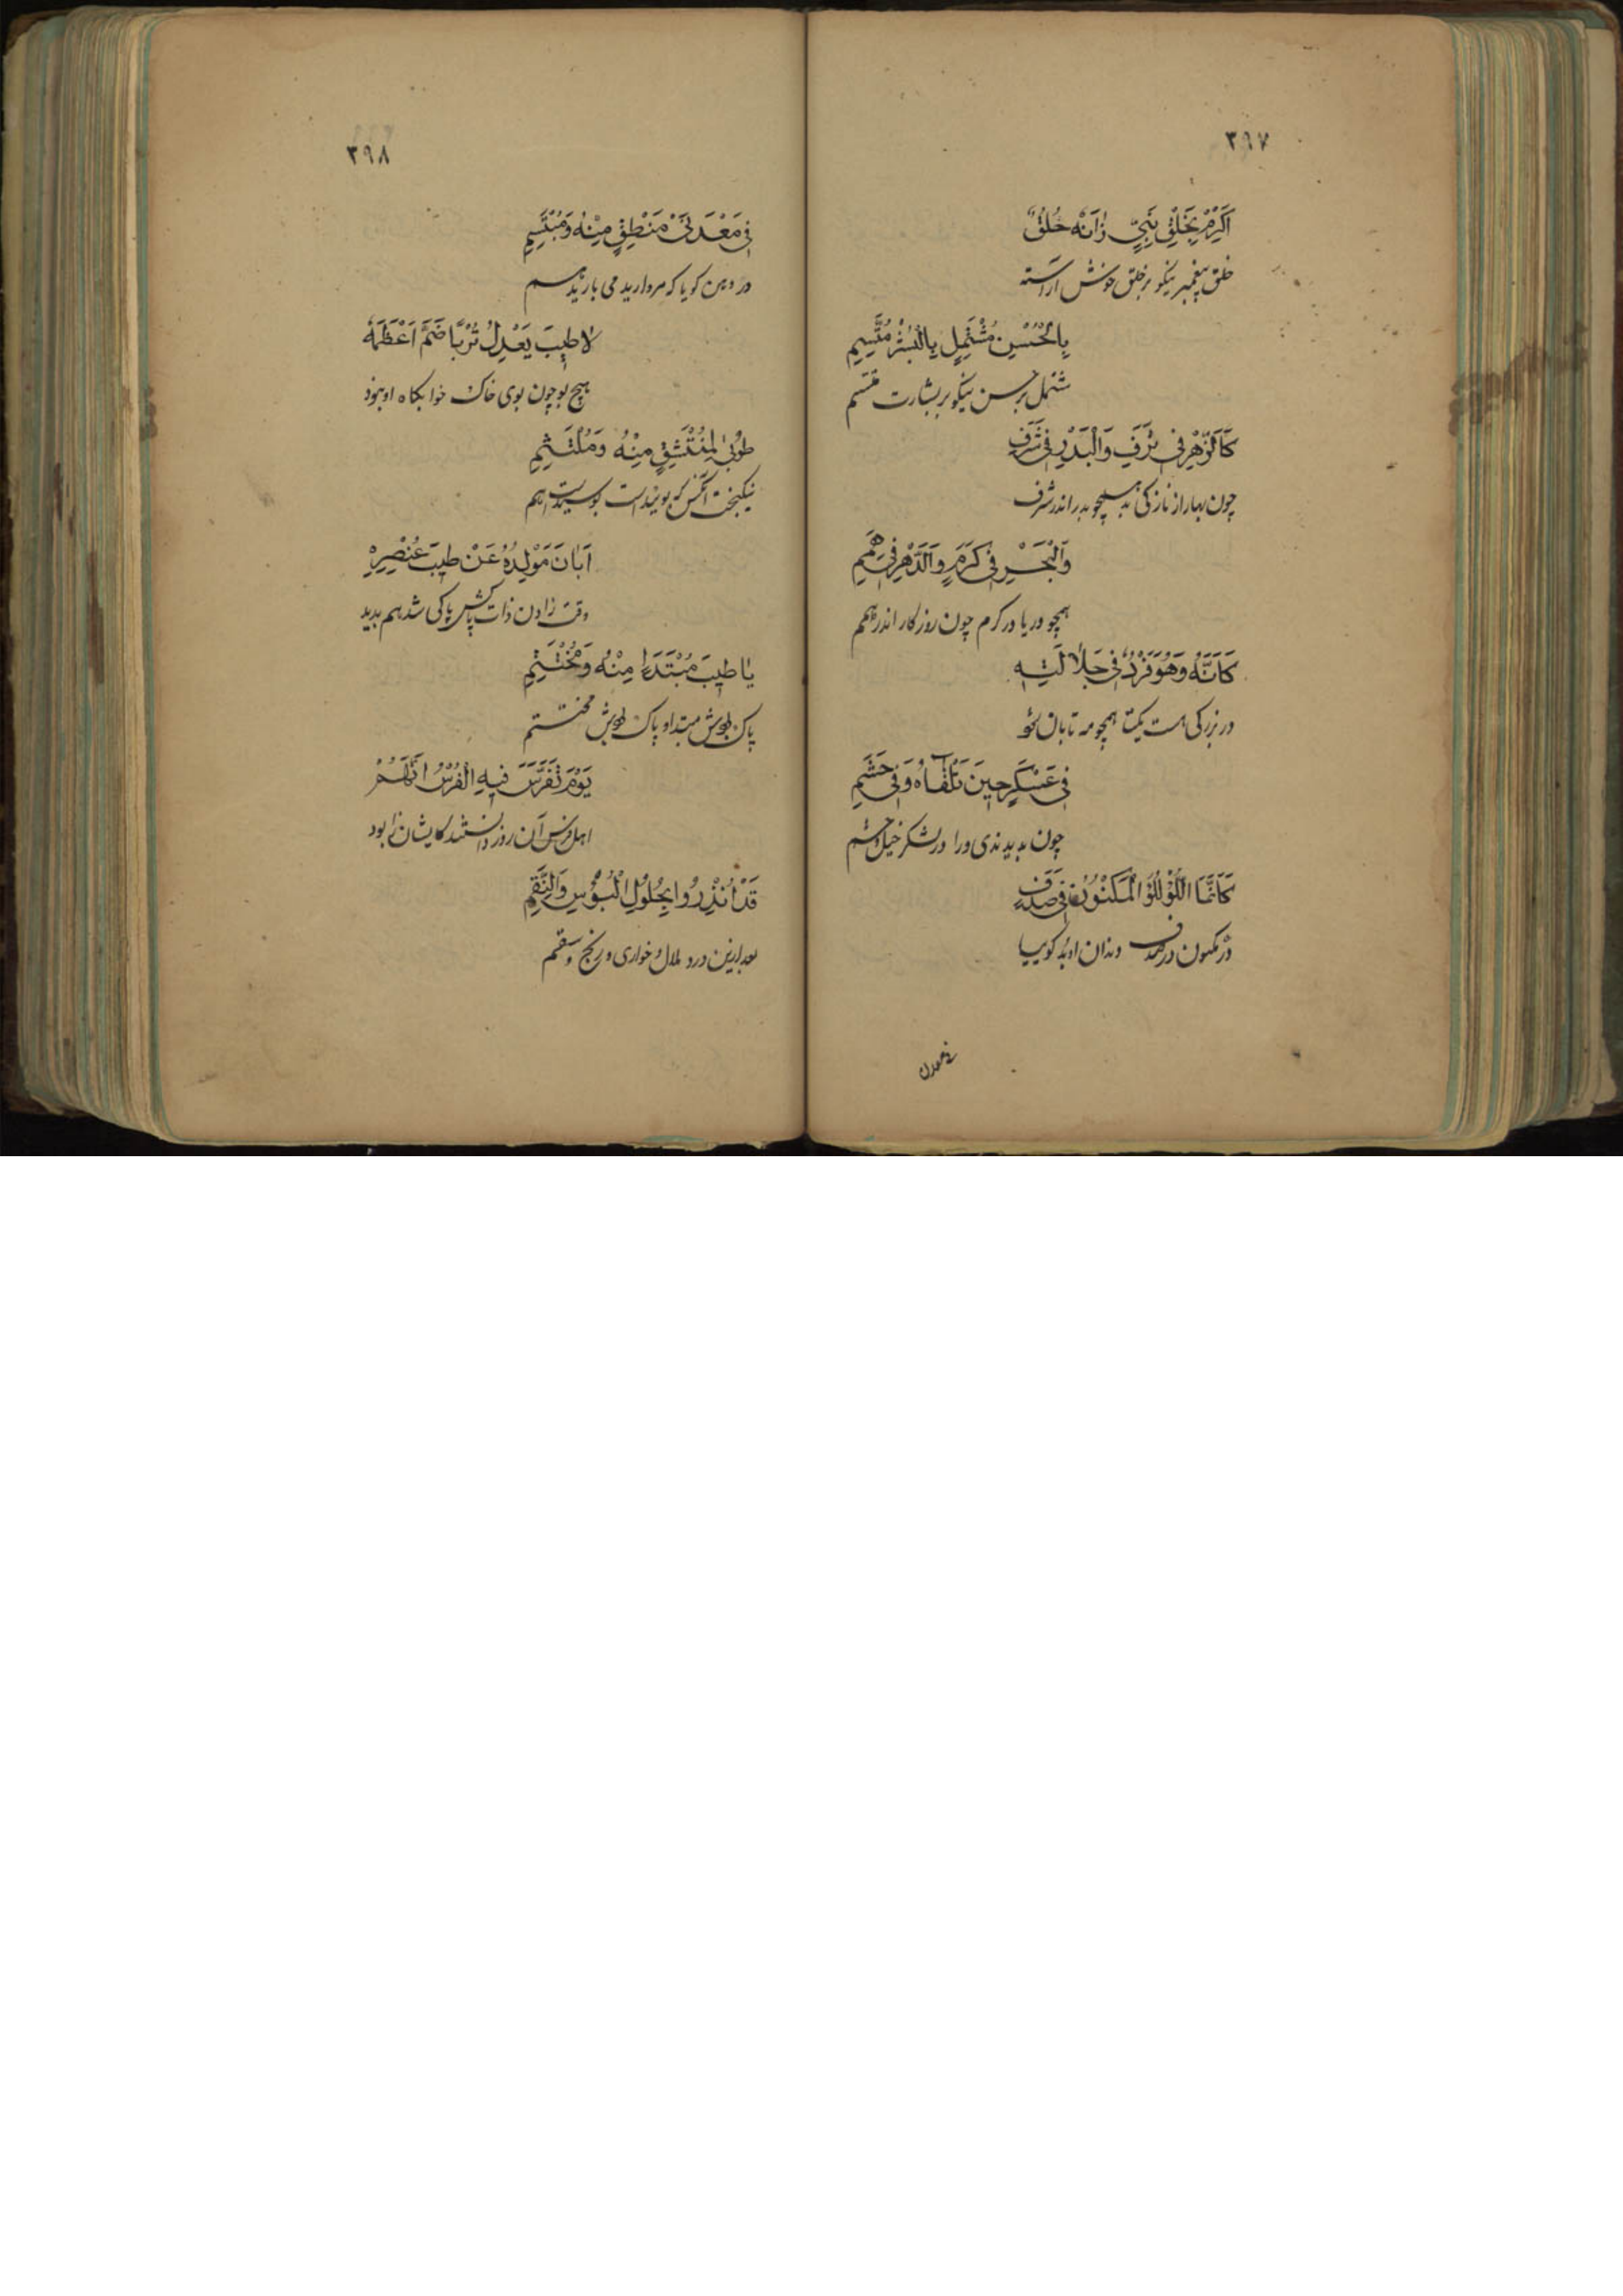 ٣٩٧
اَكْرِمْ بِخَلْقِ نَبِيٍّ زَانَهُ خُلُقٌ
خلق پیغمبر نیکو بر خلق خوش آراسته
بِالْحُسْنِ مُشْتَمِلٍ بِالْبِشْرِ مُتَّسِمِ
مشتمل بر حسن نیکو بر بشارت متسم
كَالزَّهْرِ فِى تَرَفٍ وَالْبَدْرِ فِى شَرَفٍ
چون بهار از نازکی بد همچو بدر اندر شرف
وَالْبَحْرِ فِى كَرَمٍ وَالدَّهْرِ فِى هِمَمِ
همچو دریا در کرم چون روزکار اندر همم
كَاَنَّهُ وَهُوَ فَرْدٌ فِى جَلَالَتِهِ
در بزرکی هست یکتا همچو مه تابان
فِى عَسْكَرٍ حِينَ تَلْقَاهُ وَفِى حَشَمِ
چون بدیدندی ورا در لشکر خیل و حشم
كَاَنَّمَا اللُّؤْلُؤُ الْمَكْنُوْنُ فِى صَدَفٍ
در مکنون در صدف دندان او بد کوییا
فی معدن
٣٩٨
فِى مَعْدَنَىْ مَنْطِقٍ مِنْهُ وَمُبْتَسِمِ
در دهن کویا که مروارید می بارید هم
لَا طِيبَ يَعْدِلُ تُرْبًا ضَمَّ اَعْظُمَهُ
هیچ بو چون بوی خاک خوابکاه او نبود
طُوْبٰى لِمُنْتَشِقٍ مِنْهُ وَمُلْتَثِمِ
نیکبخت آنکس که بوییدست بوسیدست هم
اَبَانَ مَوْلِدُهُ عَنْ طِيبِ عُنْصِرِهِ
وقت زادن ذات پاکش پاکی شد هم بدید
يَا طِيبَ مُبْتَدَاءٍ مِنْهُ وَمُخْتَتَمِ
پاک مبتدا و پاک مختتم
يَوْمٌ تَفَرَّسَ فِيهِ الْفُرْسُ اَنَّهُمُ
اهل فرس آن روز دانستند کایشان را بود
قَدْ اُنْذِرُوا بِحُلُوْلِ الْبُؤْسِ وَالنِّقَمِ
بعد ازین درد ملال و خواری و رنج و سقم